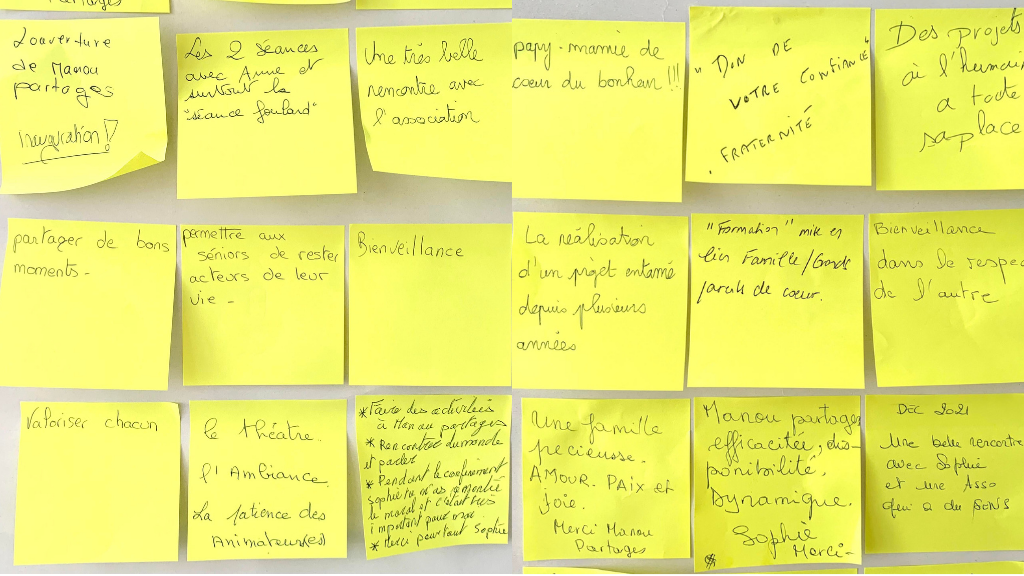 Partages
L'ouverture
de Manou
partages
Inauguration!
Les 2 séances
avec Anne et
surtout la
"séance foulard"
Une très belle
rencontre avec
l'association
papy-mamie de
cœur du bonheur!!!
"DON DE
VOTRE CONFIANCE"
. FRATERNITÉ
Des projets
où l'humain
a toute
sa place
partager de bons
moments -
permettre aux
séniors de rester
acteurs de leur
vie -
Bienveillance
La réalisation
d'un projet entamé
depuis plusieurs
années
"Formation" mise en
lien Famille/Grands
parents de cœur.
Bienveillance
dans le respec
de l'autre
Valoriser chacun
le théatre.
l'Ambiance.
La patience des
Animateur(es)
* Faire des activités
à Manou partages
* Rencontrer du monde
et parler
* Pendant le confinement
Sophie tu m'as remontée
le moral et c'était très
important pour moi.
* Merci pour tout Sophie
Une famille
precieusse.
AMOUR. PAix et
joie.
Merci Manou
Partages
Manou partages
efficacitée, dis-
ponibilité.
Dynamique.
Sophie
Merci-
Déc 2021
Une belle rencontre
avec Sophie
et une Asso
qui a du sens